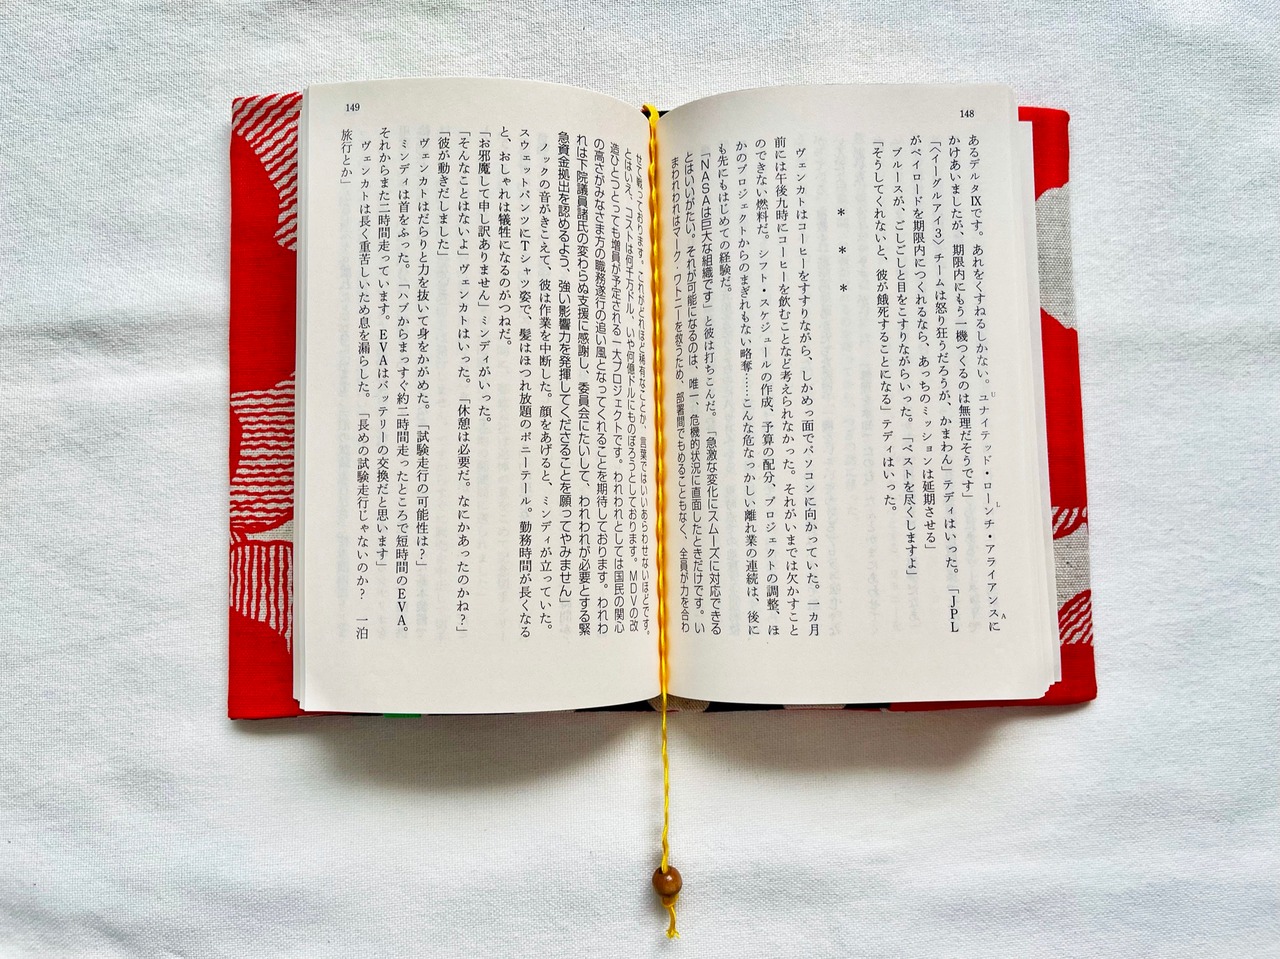 148
あるデルタⅨです。あれをくすねるしかない。ユナイテッド・ローンチ・アライアンスに
U L A
かけあいましたが、期限内にもう一機つくるのは無理だそうです」
「〈イーグル・アイ3〉チームは怒り狂うだろうが、かまわん」テディはいった。「JPL
がペイロードを期限内につくれるなら、あっちのミッションは延期させる」
ブルースが、ごしごしと目をこすりながらいった。「ベストを尽くしますよ」
「そうしてくれないと、彼が餓死することになる」テディはいった。
* * *
ヴェンカトはコーヒーをすすりながら、しかめっ面でパソコンに向かっていた。一カ月
前には午後九時にコーヒーを飲むことなど考えられなかった。それがいまでは欠かすこと
のできない燃料だ。シフト・スケジュールの作成、予算の配分、プロジェクトの調整、ほ
かのプロジェクトからのまぎれもない略奪……こんな危なっかしい離れ業の連続は、後に
も先にもはじめての経験だ。
「NASAは巨大な組織です」と彼は打ちこんだ。「急激な変化にスムーズに対応できる
とはいいがたい。それが可能になるのは、唯一、危機的状況に直面したときだけです。い
まわれわれはマーク・ワトニーを救うため、部署間でもめることもなく、全員が力を合わ
149
せて戦っております。これがどれほど稀有なことか、言葉ではいいあらわせないほどです。
とはいえ、コストは何千万ドル、いや何億ドルにものぼろうとしております。MDVの改
造ひとつとっても増員が予定される一大プロジェクトです。われわれとしては国民の関心
の高さがみなさま方の職務遂行の追い風となってくれることを期待しております。われわ
れは下院議員諸氏の変わらぬ支援に感謝し、委員会にたいして、われわれが必要とする緊
急資金拠出を認めるよう、強い影響力を発揮してくださることを願ってやみません」
ノックの音がきこえて、彼は作業を中断した。顔をあげると、ミンディが立っていた。
スウェットパンツにTシャツ姿で、髪はほつれ放題のポニーテール。勤務時間が長くなる
と、おしゃれは犠牲になるのがつねだ。
「お邪魔して申し訳ありません」ミンディがいった。
「そんなことはないよ」ヴェンカトはいった。「休憩は必要だ。なにかあったのかね?」
「彼が動きだしました」
ヴェンカトはだらりと力を抜いて身をかがめた。「試験走行の可能性は?」
ミンディは首をふった。「ハブからまっすぐ約二時間走ったところで短時間のEVA。
それからまた二時間走っています。EVAはバッテリーの交換だと思います」
ヴェンカトは長く重苦しいため息を漏らした。「長めの試験走行じゃないのか? 一泊
旅行とか」